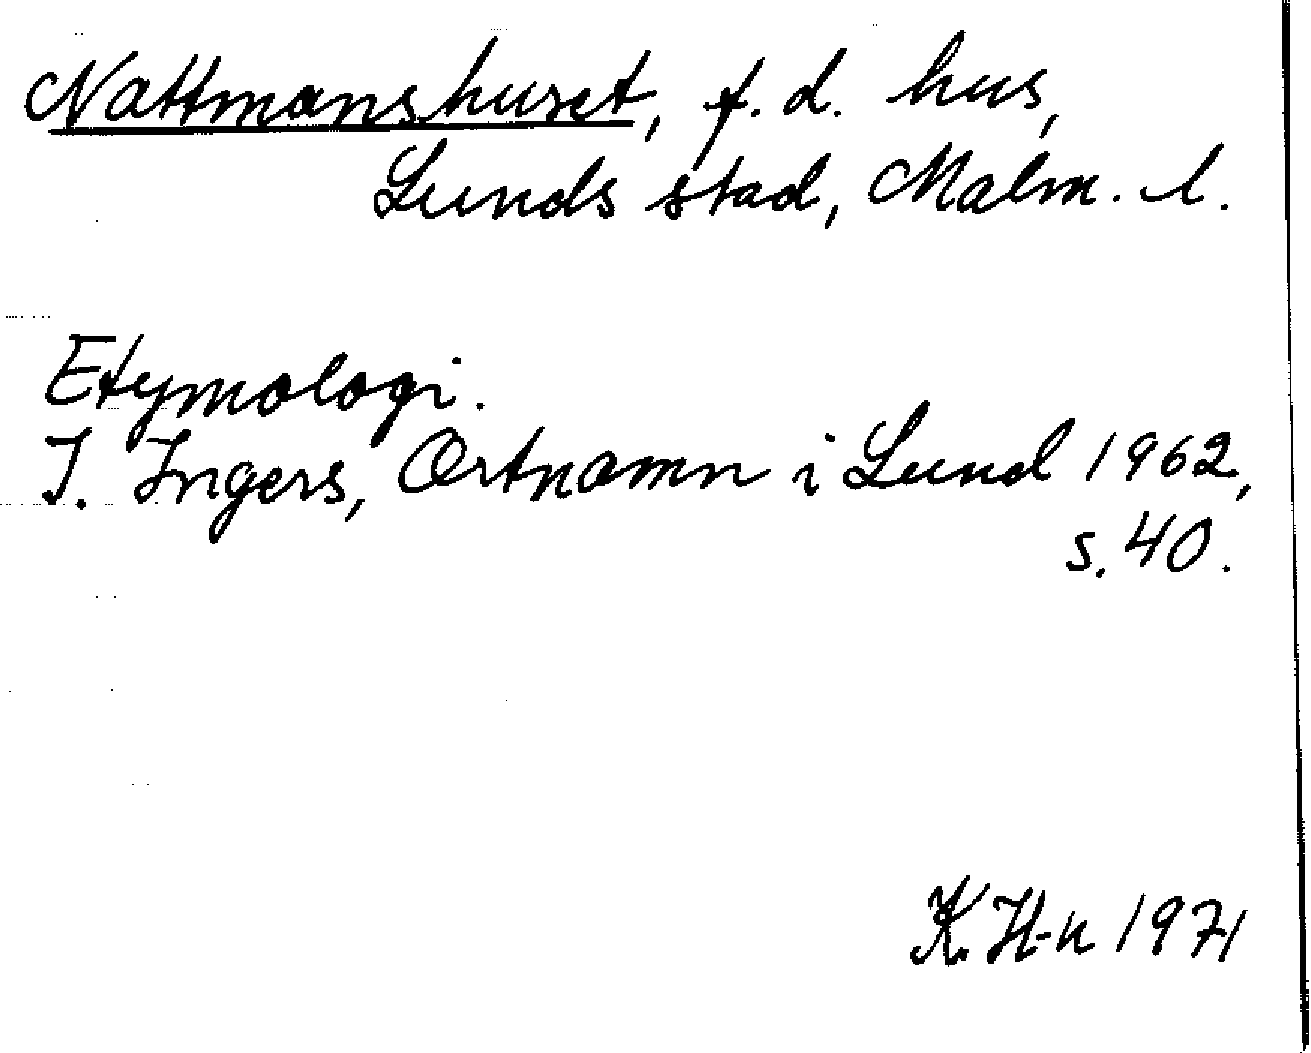 Nattmanshuset, f.d. hus,
Lunds stad, Malm. l.
Etymologi.
I. Ingers, Ortnamn i Lund 1962,
s. 40.
K. H-n 1971